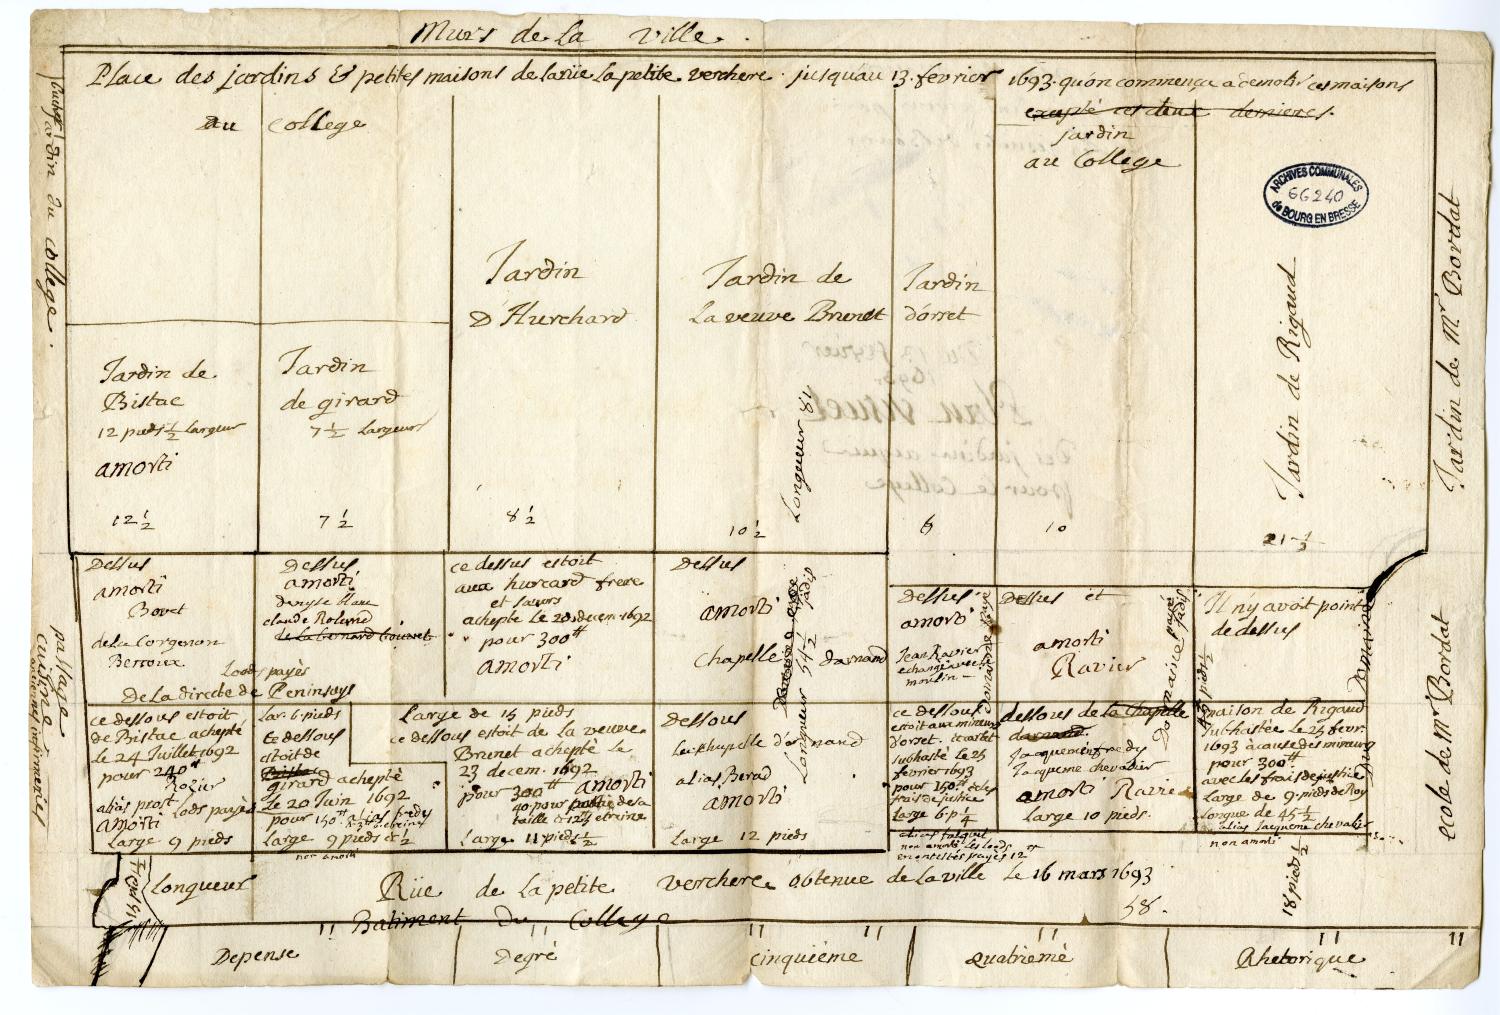 Murs de la ville.
Place des jardins & petites maisons de la rüe la petite verchere jusquau 13. fevrier 1693. quon commença a demolir ces maisons
excepté ces deux dernieres.
au college
jardin
au College
jardin du college.
ARCHIVES COMMUNALES
GG 240
de BOURG EN BRESSE
Jardin
D'Hurchard
Jardin de
La veuve Brunet
Jardin
d'orset
Jardin de Rigaud
Jardin de Mr Bordat
Jardin de
Bistac
12 pieds ½ largeur
amorti
12 ½
Jardin
de girard
7 ½ largeurs
7 ½
8 ½
10 ½
Longueur 84
6
10
21 ½
Dessus
amorti
Bovet
de la Corgenon
Berroux
Dessus
amorti
denyse blanc
claude
Lods payès
De la directe de Peninsuys
ce dessus estoit
aux hurcard frere
et sœurs
achepté le 20 decem. 1692
pour 300tt
amorti
Dessus
amorti
Chapelle darnand
jadis
Longueur 54 ½
Dessus
amorti
Jean Ravier
echangé avec
moulin
Domaine payé
Dessus et
amorti
Ravier
Domaine payé
jadis
Il n'y avoit point
de dessus
Domaine
passage
cuisine
anciennes infirmeries
ce dessous estoit
de Bistac achepté
le 24 Juillet 1692
pour 240tt
Rozier
alias prost lods payès
amorti
large 9 pieds
lar. 6. pieds
ce dessous
estoit de
Bistac
girard achepté
Le 20 Juin 1692
pour 150tt
large 9 pieds et ½
non amorti
large de 15 pieds
ce dessous estoit de la veuve
Brunet achepté le
23 decem. 1692
pour 300tt amorti
Large 11 pieds ½
dessous
La chapelle d'arnand
alias Berad
amorti
large 12 pieds
ce dessous
estoit aux mineurs
d'orset.
subhasté le 25
fevrier 1693
pour 150tt
frais de justice
large 6. p ¼
non amorti les lods
payès 12
dessous de la chapelle
darnand.
Jacquemenfredy
Jacqueme chevalier
amorti Ravier
large 10 pieds.
maison de Rigaud
subhastée le 25 fevr.
1693 à cause des mineurs
pour 300tt
avec les frais de justice
large de 9. pieds de Roy
longue de 45 ½
alias jacqueme chevalier
non amorti
ecole de Mr Bordat
Longueur
Rüe de la petite verchere obtenue de la ville le 16 mars 1693
58.
18 pieds ½
Batiment du College
Depense
Degré
cinquiéme
Quatriémé
Rhetorique